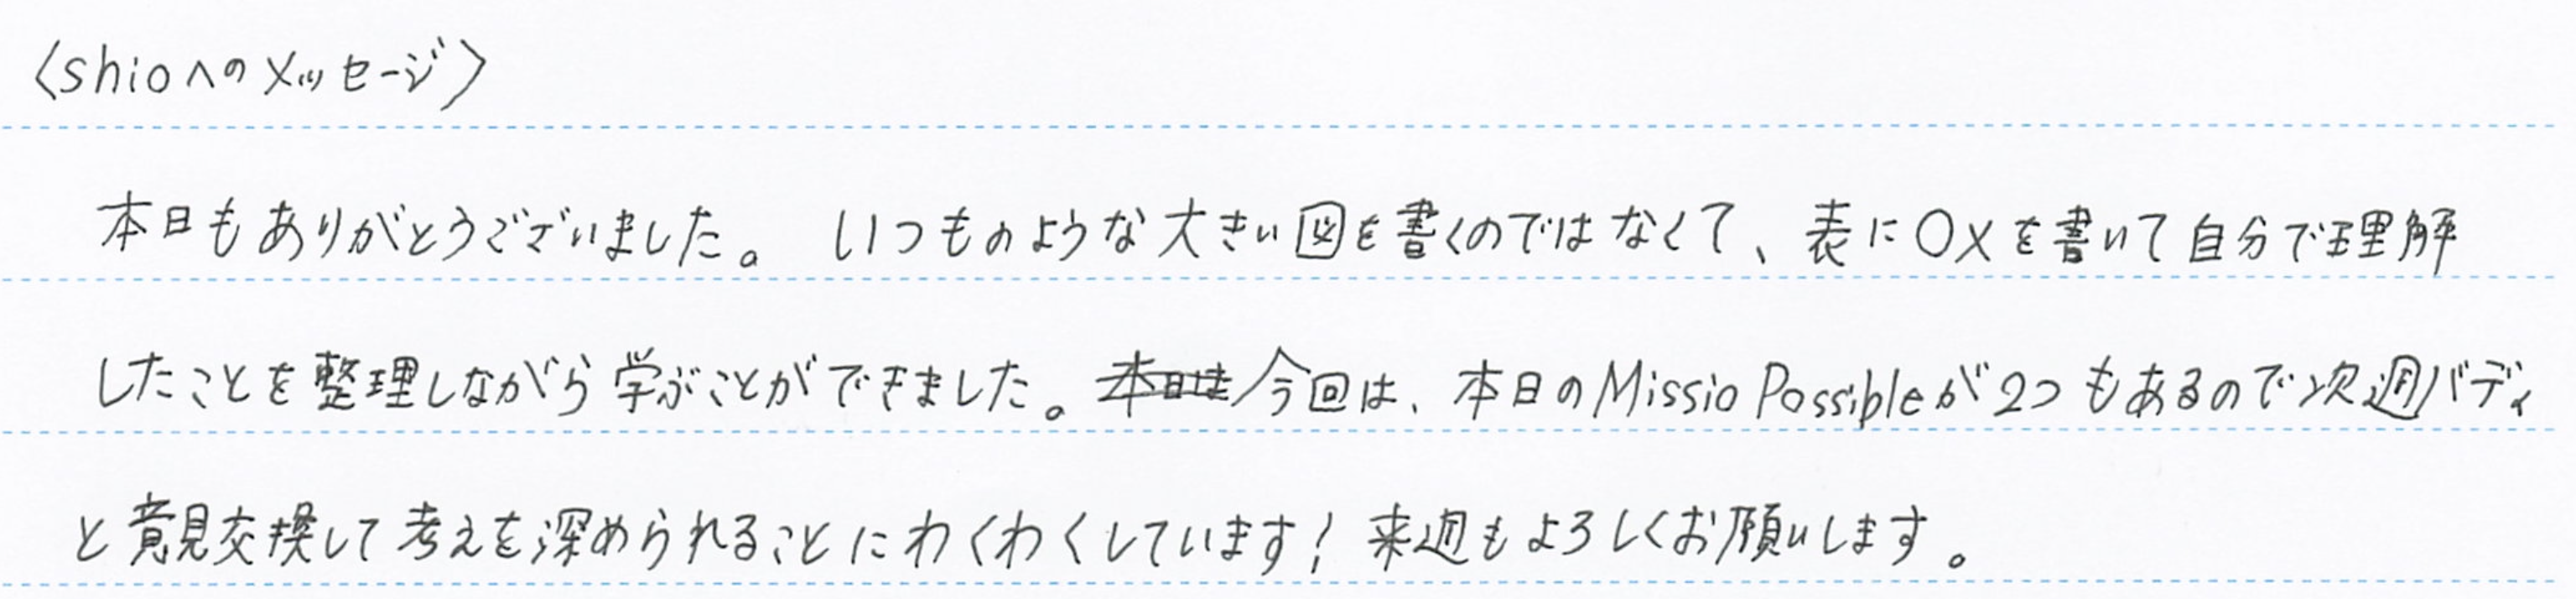 〈shioへのメッセージ〉
本日もありがとうございました。 いつものような大きい図を書くのではなくて、表に○×を書いて自分で理解
したことを整理しながら学ぶことができました。本日は今回は、本日のMissio Possibleが2つもあるので次週バディ
と意見交換して考えを深められることにわくわくしています！来週もよろしくお願いします。